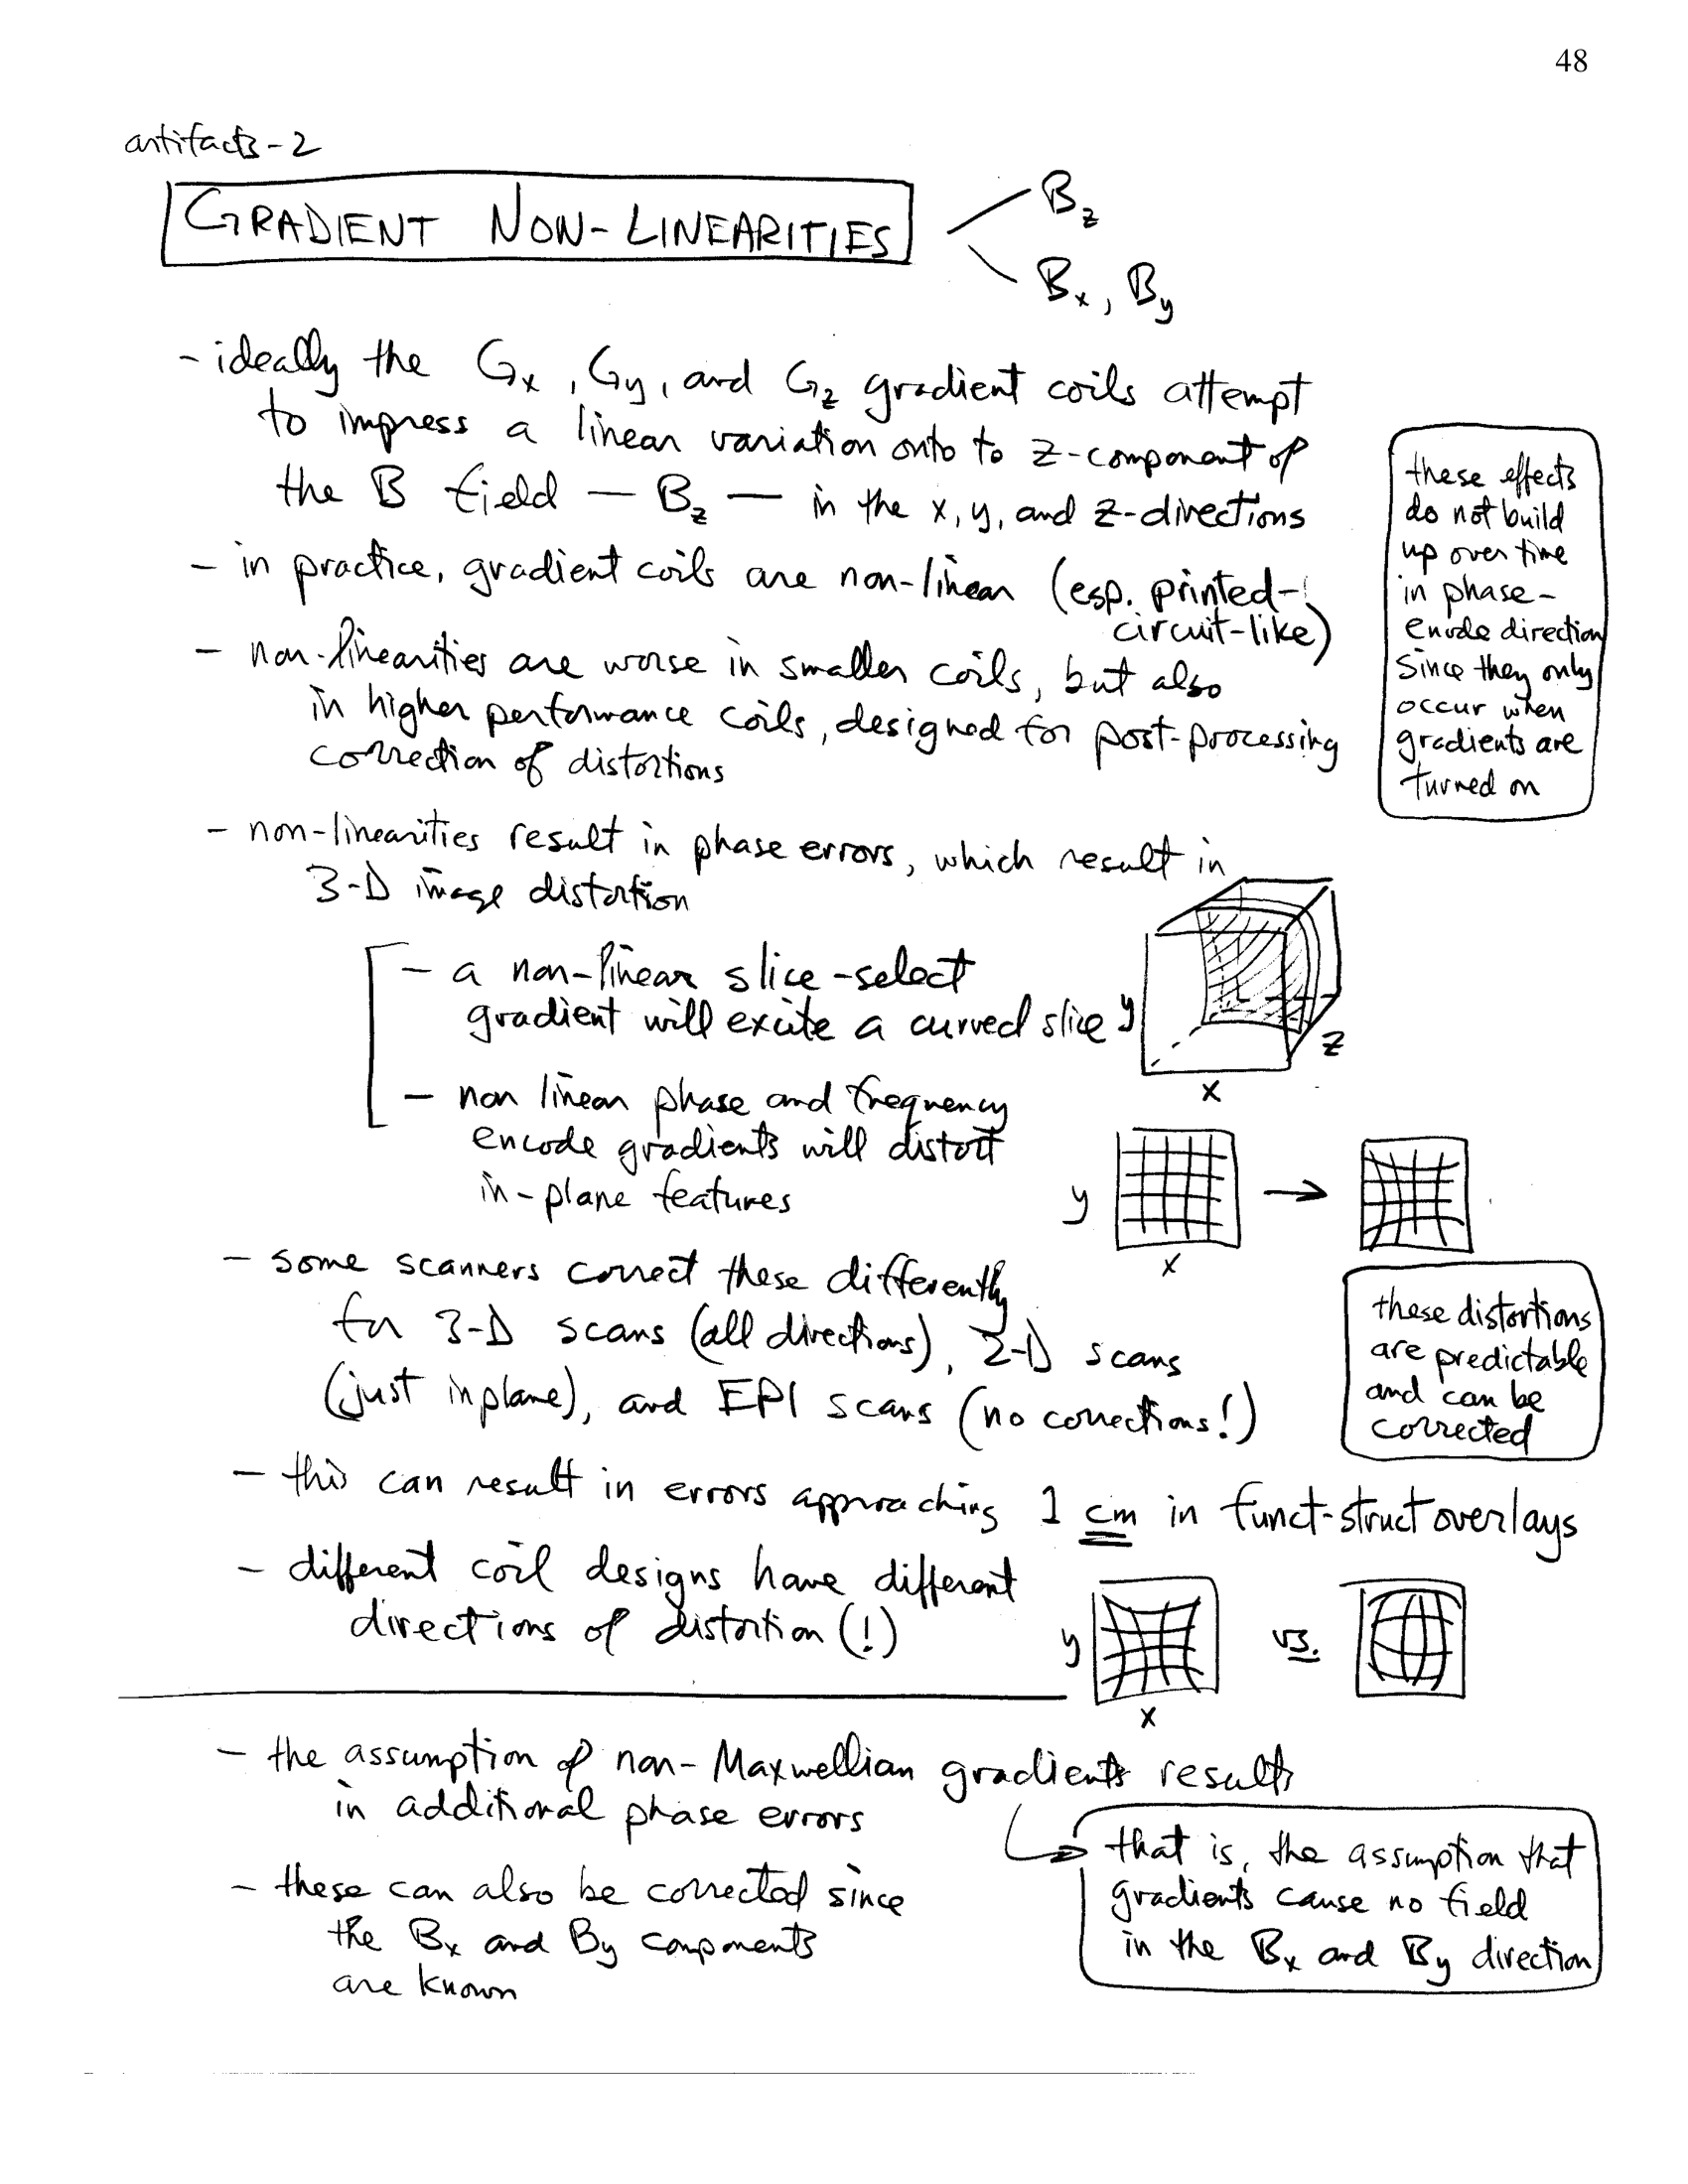 48
artifacts-2
GRADIENT NON-LINEARITIES
Bz
Bx, By
- ideally the Gx, Gy, and Gz gradient coils attempt
to impress a linear variation onto to z-component of
the B field — Bz — in the x, y, and z-directions
- in practice, gradient coils are non-linear (esp. printed-
circuit-like)
- non-linearities are worse in smaller coils, but also
in higher performance coils, designed for post-processing
correction of distortions
these effects
do not build
up over time
in phase-
encode direction
since they only
occur when
gradients are
turned on
- non-linearities result in phase errors, which result in
3-D image distortion
- a non-linear slice-select
gradient will excite a curved slice
y
z
x
- non linear phase and frequency
encode gradients will distort
in-plane features
y
x
- some scanners correct these differently
for 3-D scans (all directions), 2-D scans
(just inplane), and EPI scans (no corrections!)
these distortions
are predictable
and can be
corrected
- this can result in errors approaching 1 cm in funct-struct overlays
- different coil designs have different
directions of distortion (!)
y
vs.
x
- the assumption of non-Maxwellian gradients results
in additional phase errors
that is, the assumption that
gradients cause no field
in the Bx and By direction
- these can also be corrected since
the Bx and By components
are known